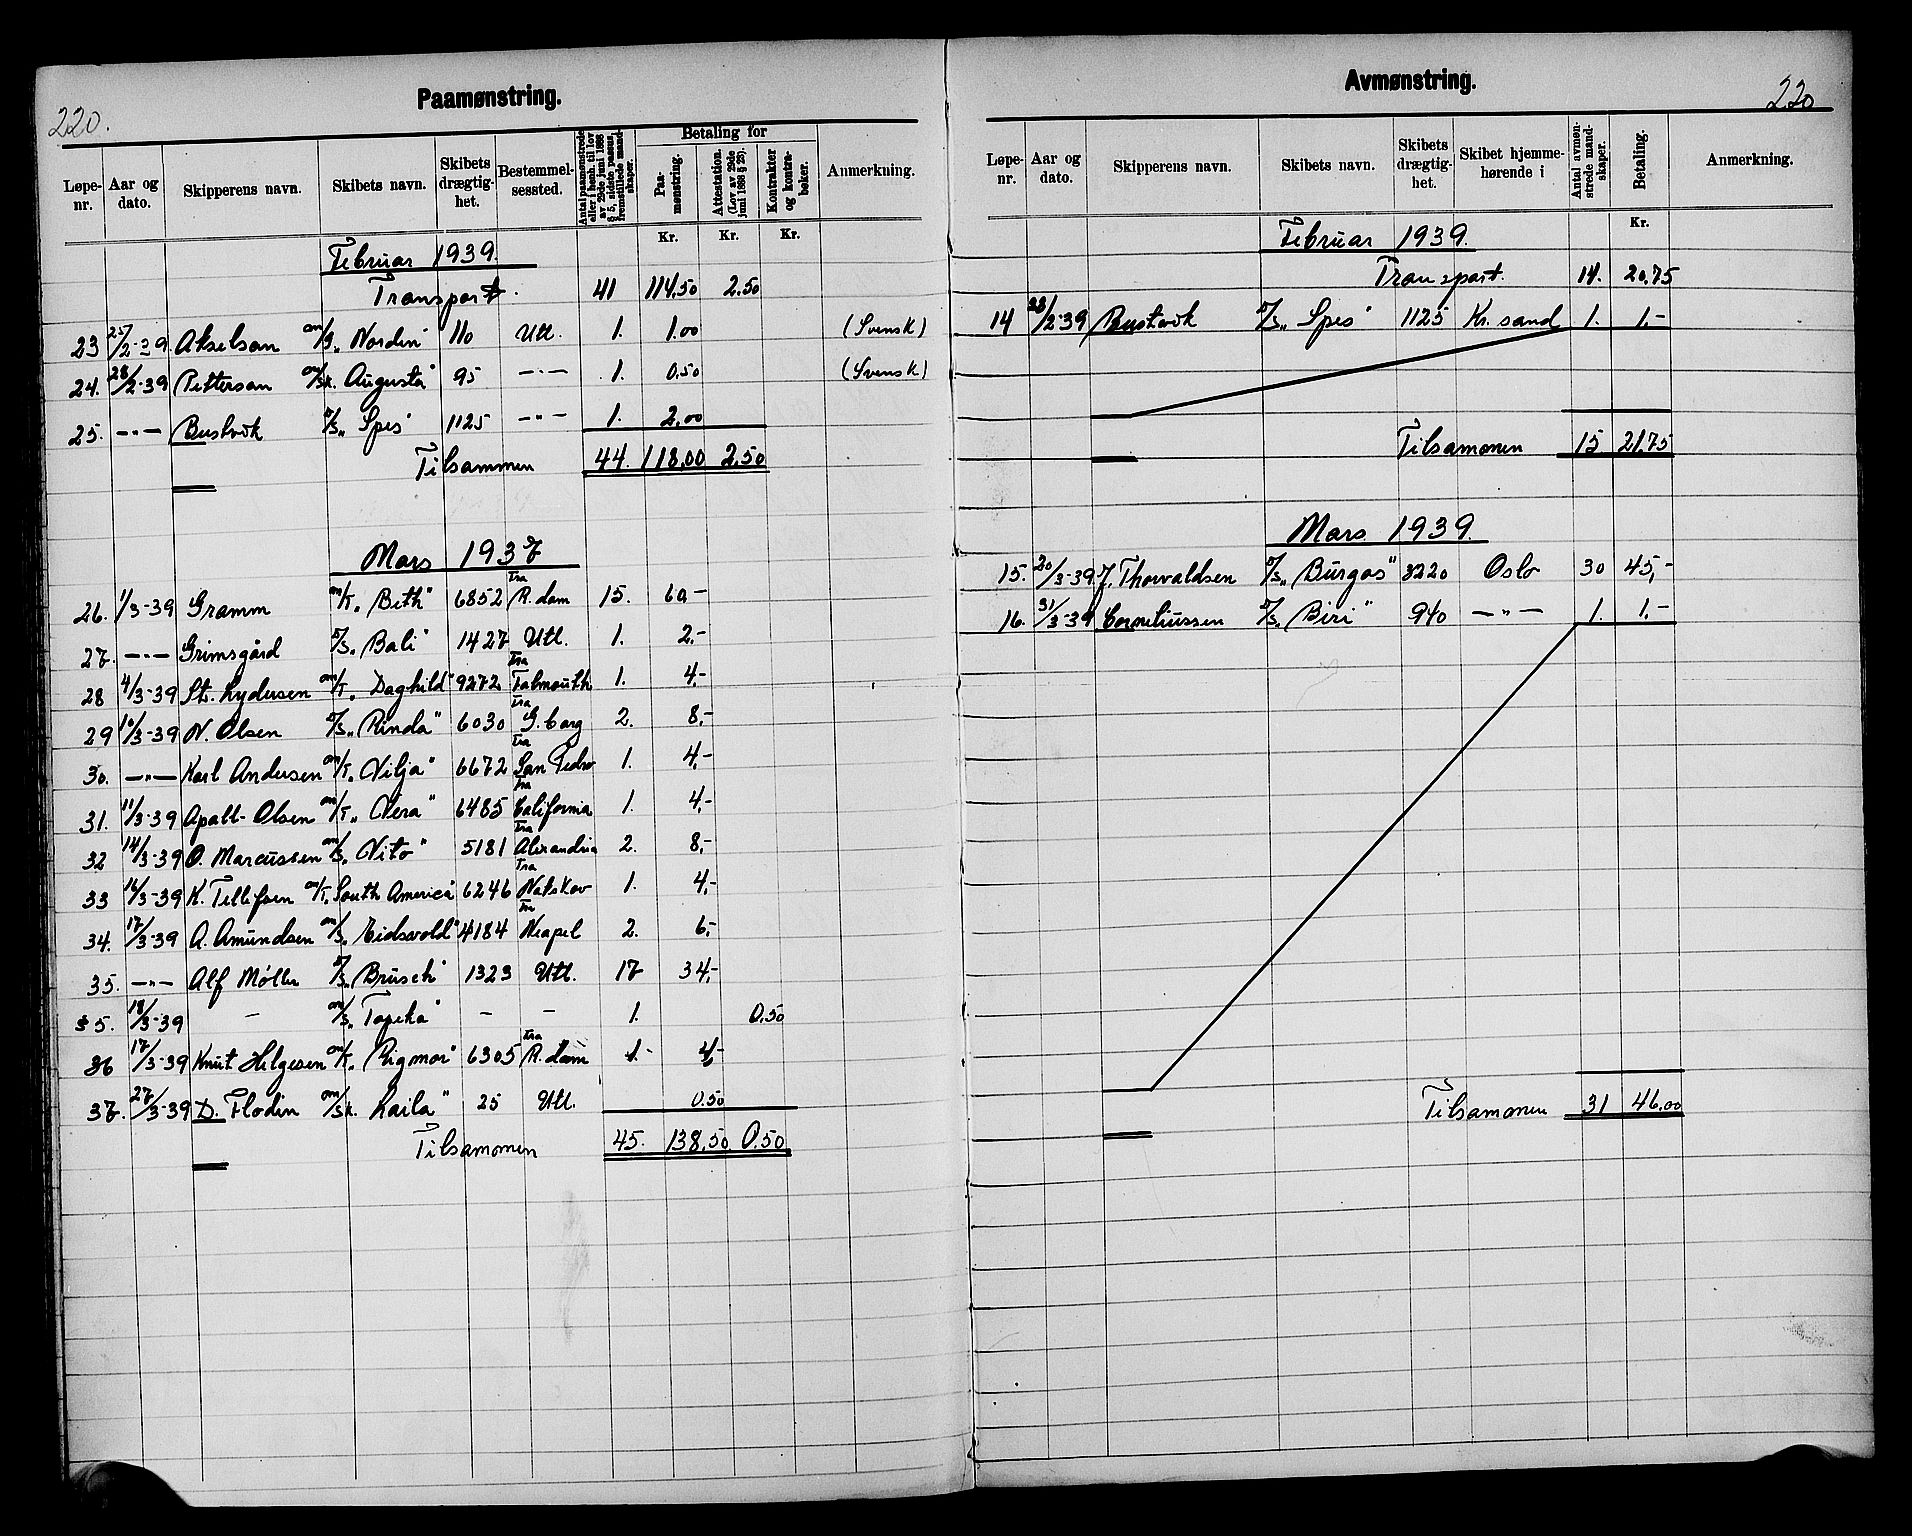 220.
Paamønstring.
Løpe-nr. Aar og dato. Skipperens navn. Skibets navn. Skibets drægtig-het. Bestemmel-sessted. Antal paamønstrede eller i henh. til lov av 29de juni 1888 § 5, sidste passus, fremstillede mand-skaper. Betaling for Paa-mønstring. Attestation. (Lov av 29de juni 1888 § 23). Kontrakter og kontra-bøker. Anmerkning.
Kr. Kr. Kr.
Februar 1939.
Transport. 41 114.50 2.50
23 25/2-39. Akselson m/g „Nordin" 110 Utl. 1. 1.00 (Svensk)
24. 28/2-39 Petterson m/sk. Augusta" 95 —"— 1. 0.50 (Svensk)
25. —"— Bustvik D/S „Spes" 1125 —"— 1. 2.00
Tilsammen 44. 118.00 2.50
Mars 1937
26. 1/3-39 Gramm m/T. „Beth" 6852 Fra R.dam 15. 60-
27. —"— Grimsgård D/S „Bali" 1427 Utl. 1. 2.-
28 4/3-39 St. Lydersen m/T. „Daghild" 9272 Fra Falmouth 1. 4.-
29 10/3-39 N. Olsen D/S „Rinda" 6030 Fra G.borg 2. 8.-
30. —"— Karl Andersen m/T. „Vilja" 6672 Fra San Pedro 1. 4.-
31. 11/3-39 Apall-Olsen m/T. „Vera" 6485 Fra California 1. 4.-
32 14/3-39 O. Marcussen m/S. „Vito" 5181 Fra Alexandria 2. 8.-
33 16/3-39 K. Tellefsen m/T. South America" 6246 Fra Nakskov 1. 4.-
34. 17/3-39 A. Amundsen m/S. „Eidsvold" 4184 Fra Neapel 2. 6.-
35. —"— Alf Møller D/S. „Bruse" 1323 Utl. 17 34.-
§ 5. 18/3-39 — m/S. „Topeka" — — 1. 0.50
36 17/3-39 Knut Helgesen m/T. „Rigmor" 6305 Fra R.dam 1- 4-
37. 27/3-39 D. Flodin m/sk. Laila" 25 Utl. 0.50
Tilsammen 45. 138.50 0.50
Avmønstring.
220
Løpe-nr. Aar og dato. Skipperens navn. Skibets navn. Skibets drægtig-het. Skibet hjemme-hørende i Antal avmøn-strede mand-skaper. Betaling. Anmerkning.
Kr.
Februar 1939.
Transport. 14. 20.75
14 28/2-39 Bustvik D/S „Spes" 1125 Kr. sand 1. 1.-
Tilsammen 15 21.75
Mars 1939.
15. 20/3-39 J. Thorvaldsen D/S „Burgos" 3220 Oslo 30 45,-
16. 31/3-39 Corneliussen D/S „Biri" 940 —"— 1. 1.-
Tilsammen 31 46.00